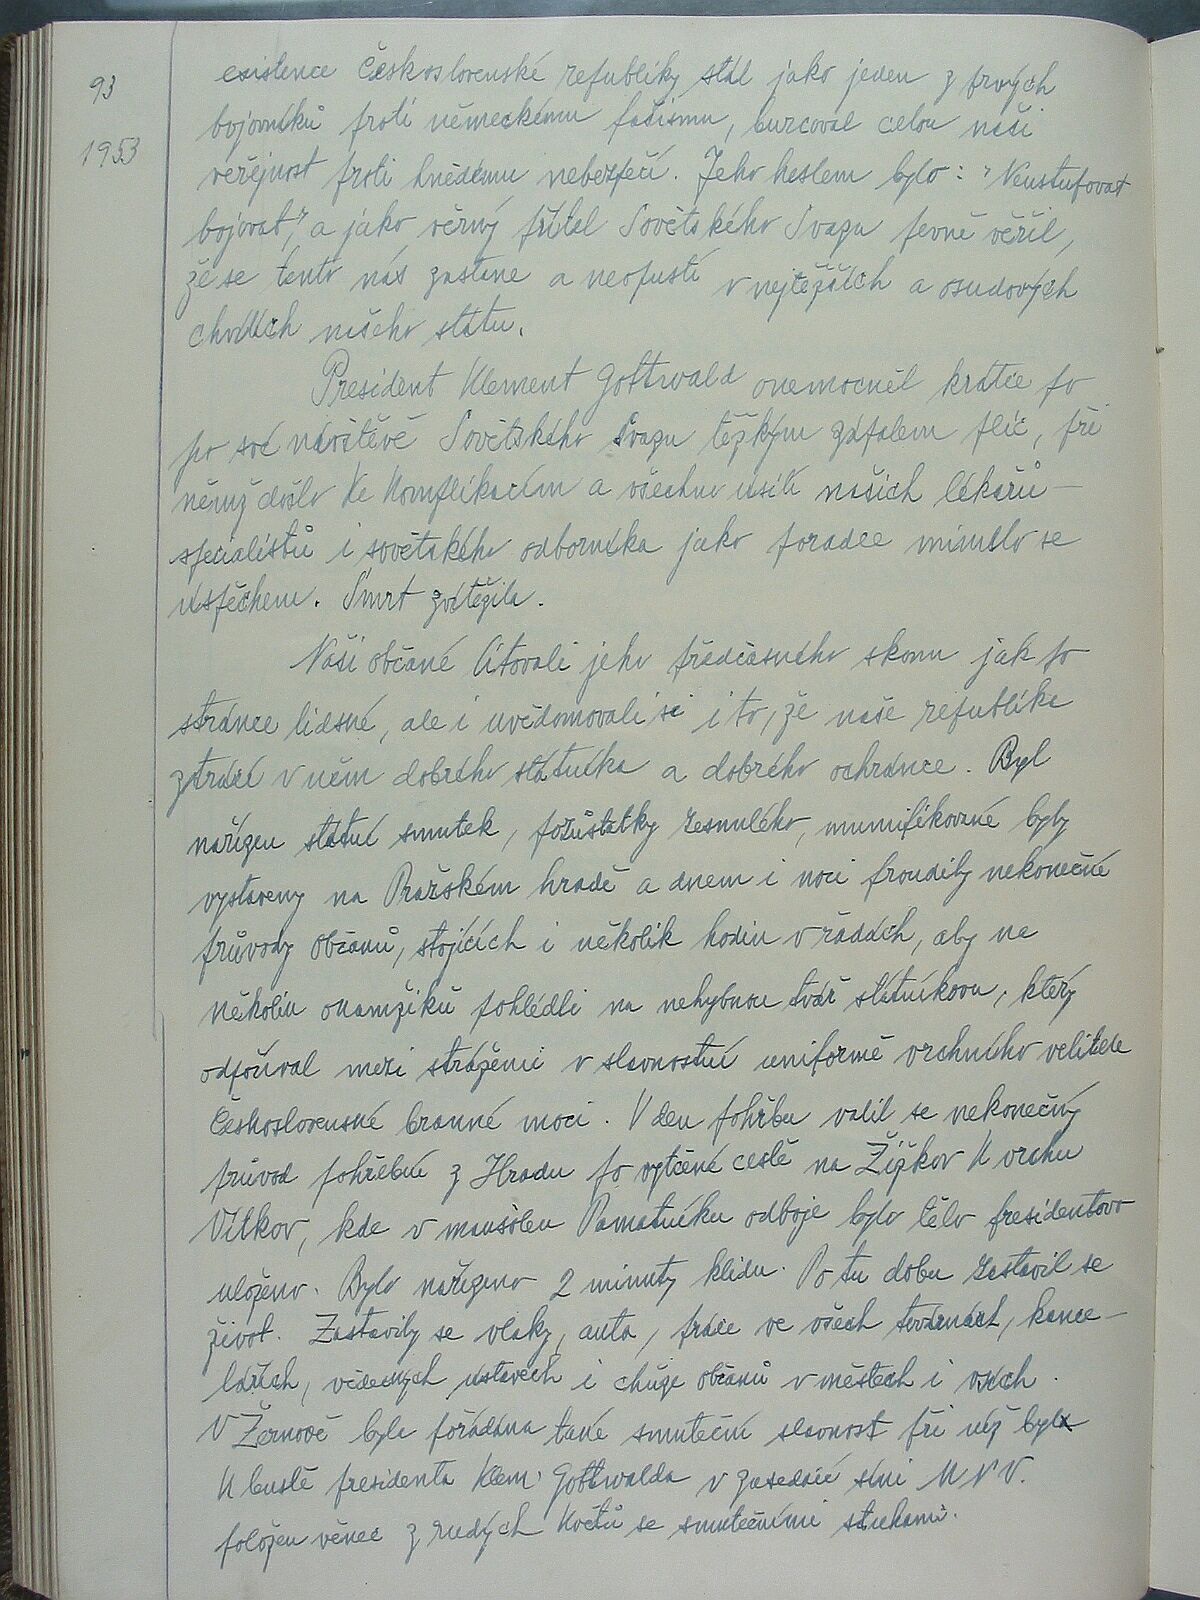 93
1953
existence Československé republiky stál jako jeden z prvých
bojovníků proti německému fašismu, burcoval celou naši
veřejnost proti hnědému nebezpečí. Jeho heslem bylo: "Neustupovat
bojovat," a jako věrný přítel Sovětského Svazu pevně věřil,
že se tento nás zastane a neopustí v nejtěžších a osudových
chvílích našeho státu.
President Klement Gottwald onemocněl krátce po
po své návštěvě Sovětského Svazu těžkým zápalem plic, při
němž došlo ke komplikacím a všechno úsilí našich lékařů-
specialistů i sovětského odborníka jako poradce minulo se
úspěchem. Smrt zvítězila.
Naši občané litovali jeho předčasného skonu jak po
stránce lidské, ale i uvědomovali si i to, že naše republika
ztrácí v něm dobrého státníka a dobrého ochránce. Byl
nařízen státní smutek, pozůstatky zesnulého, mumifikované byly
vystaveny na Pražském hradě a dnem i nocí proudily nekonečné
průvody občanů, stojících i několik hodin v řadách, aby na
několik okamžiků pohlédli na nehybnou tvář státníkovu, který
odpočíval mezi strážemi v slavnostní uniformě vrchního velitele
Československé branné moci. V den pohřbu valil se nekonečný
průvod pohřební z Hradu po vytčené cestě na Žižkov k vrchu
Vítkov, kde v mausoleu Památníku odboje bylo tělo presidentovo
uloženo. Bylo nařízeno 2 minuty klidu. Po tu dobu zastavil se
život. Zastavily se vlaky, auta, práce ve všech továrnách, kance-
lářích, vědeckých ústavech i chůze občanů v městech i vsích.
V Žernově byla pořádána také smuteční slavnost při níž byl
k bustě presidenta Klem. Gottwalda v zasedací síni M N V.
položen věnec z rudých květů se smutečními stuhami.